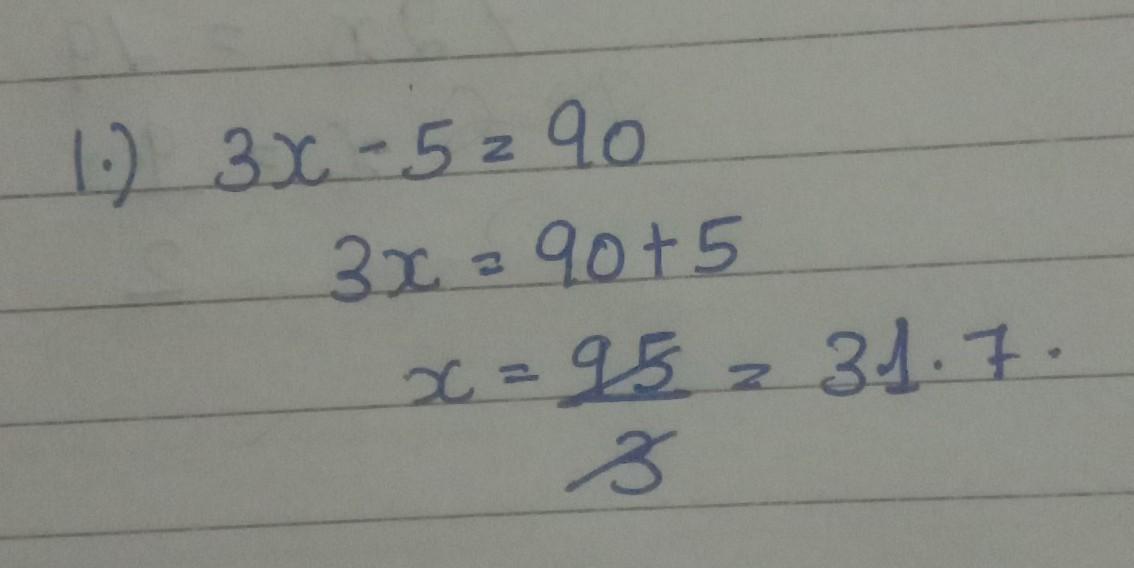 1.) 3x - 5 = 90
3x = 90 + 5
x = 95/3 = 31.7.